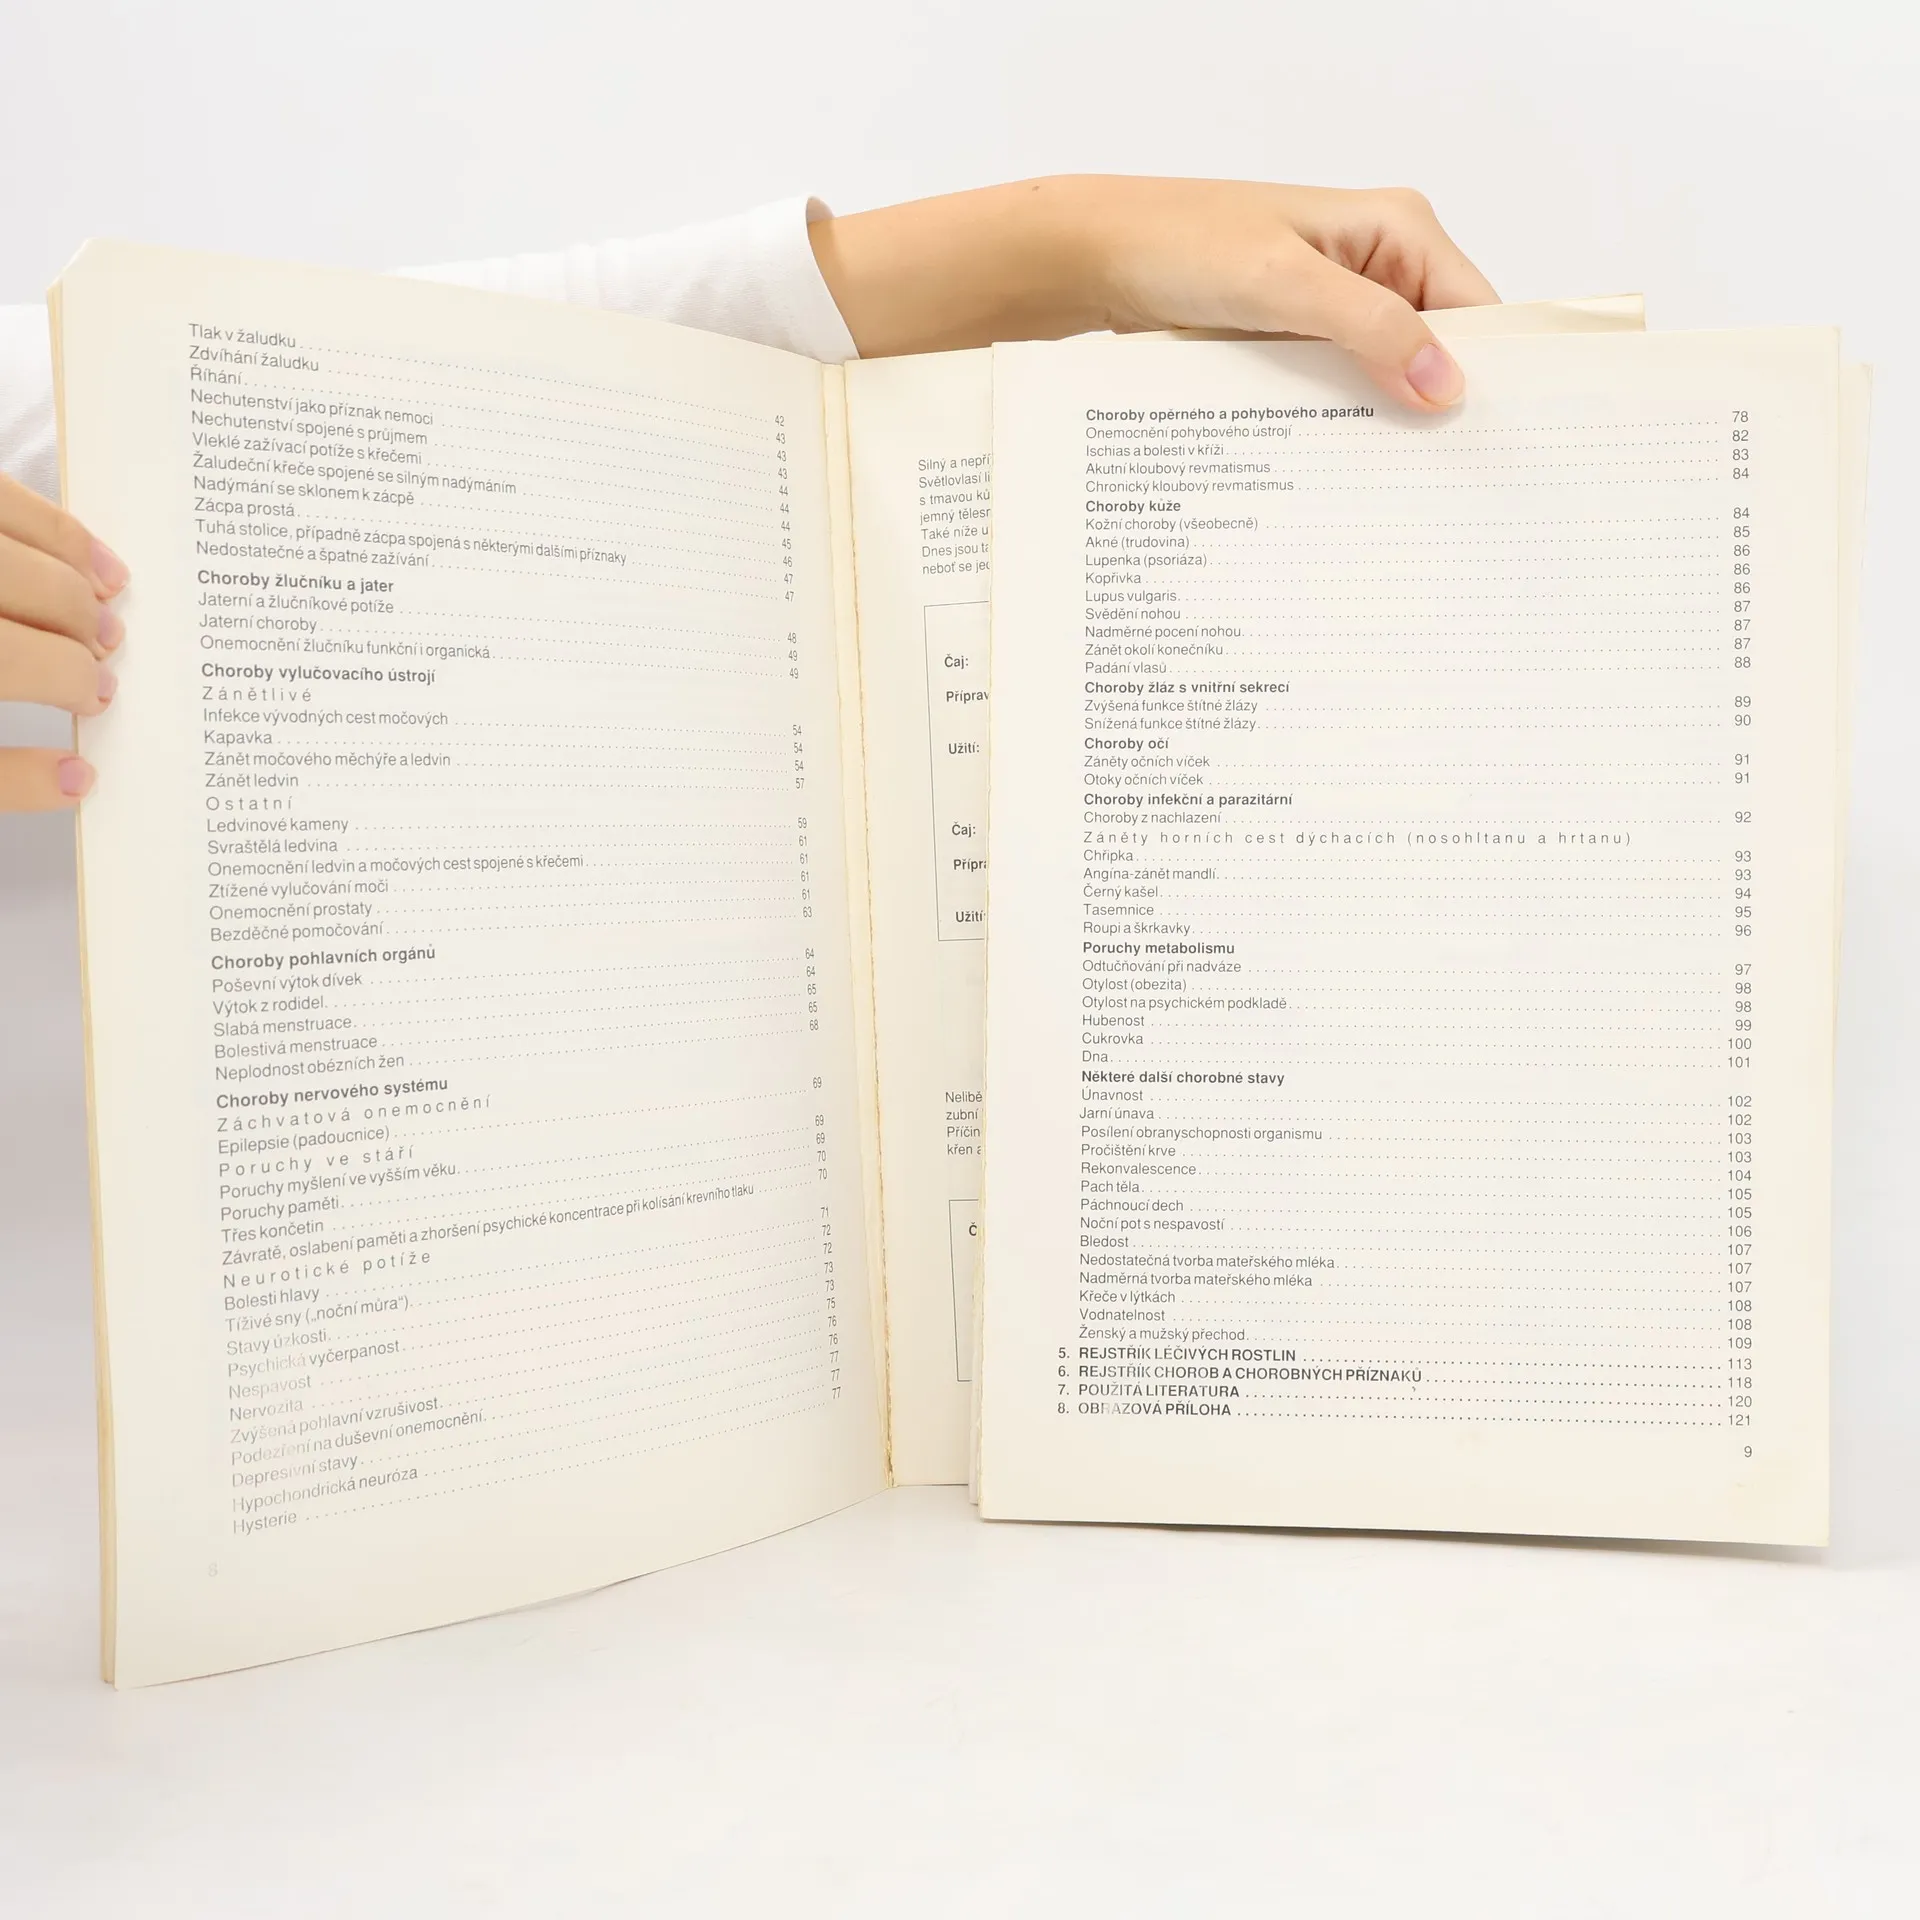 Tlak v žaludku 42
Zdvíhání žaludku 43
Říhání 43
Nechutenství jako příznak nemoci 43
Nechutenství spojené s průjmem 44
Vleklé zažívací potíže s křečemi 44
Žaludeční křeče spojené se silným nadýmáním 44
Nadýmání se sklonem k zácpě 45
Zácpa prostá 46
Tuhá stolice, případně zácpa spojená s některými dalšími příznaky 47
Nedostatečné a špatné zažívání 47
Choroby žlučníku a jater
Jaterní a žlučníkové potíže 48
Jaterní choroby 49
Onemocnění žlučníku funkční i organická 49
Choroby vylučovacího ústrojí
Zánětlivé
Infekce vývodných cest močových 54
Kapavka 54
Zánět močového měchýře a ledvin 54
Zánět ledvin 57
Ostatní
Ledvinové kameny 59
Svraštělá ledvina 61
Onemocnění ledvin a močových cest spojené s křečemi 61
Ztížené vylučování moči 61
Onemocnění prostaty 61
Bezděčné pomočování 63
Choroby pohlavních orgánů
Poševní výtok dívek 64
Výtok z rodidel 64
Slabá menstruace 65
Bolestivá menstruace 65
Neplodnost obézních žen 68
Choroby nervového systému
Záchvatová onemocnění
Epilepsie (padoucnice) 69
Poruchy ve stáří
Poruchy myšlení ve vyšším věku 69
Poruchy paměti 69
Třes končetin 70
Závratě, oslabení paměti a zhoršení psychické koncentrace při kolísání krevního tlaku 70
Neurotické potíže
Bolesti hlavy 71
Tíživé sny („noční můra“) 72
Stavy úzkosti 72
Psychická vyčerpanost 73
Nespavost 73
Nervozita 75
Zvýšená pohlavní vzrušivost 76
Podezření na duševní onemocnění 76
Depresivní stavy 77
Hypochondrická neuróza 77
Hysterie 77
8
Silný a nepří
Světlovlasí
s tmavou ků
jemný tělesn
Také níže u
Dnes jsou ta
neboť se jed
Čaj:
Příprav
Užití:
Čaj:
Přípra
Užití:
Nelibě
zubní
Příčin
křen a
Č
Choroby opěrného a pohybového aparátu
Onemocnění pohybového ústrojí 78
Ischias a bolesti v kříži 82
Akutní kloubový revmatismus 83
Chronický kloubový revmatismus 84
Choroby kůže
Kožní choroby (všeobecně) 84
Akné (trudovina) 85
Lupenka (psoriáza) 86
Kopřivka 86
Lupus vulgaris 86
Svědění nohou 87
Nadměrné pocení nohou 87
Zánět okolí konečníku 87
Padání vlasů 88
Choroby žláz s vnitřní sekrecí
Zvýšená funkce štítné žlázy 89
Snížená funkce štítné žlázy 90
Choroby očí
Záněty očních víček 91
Otoky očních víček 91
Choroby infekční a parazitární
Choroby z nachlazení 92
Záněty horních cest dýchacích (nosohltanu a hrtanu)
Chřipka 93
Angína-zánět mandlí 93
Černý kašel 94
Tasemnice 95
Roupi a škrkavky 96
Poruchy metabolismu
Odtučňování při nadváze 97
Otylost (obezita) 98
Otylost na psychickém podkladě 98
Hubenost 99
Cukrovka 100
Dna 101
Některé další chorobné stavy
Únavnost 102
Jarní únava 102
Posílení obranyschopnosti organismu 103
Pročištění krve 103
Rekonvalescence 104
Pach těla 105
Páchnoucí dech 105
Noční pot s nespavostí 106
Bledost 107
Nedostatečná tvorba mateřského mléka 107
Nadměrná tvorba mateřského mléka 107
Křeče v lýtkách 108
Vodnatelnost 108
Ženský a mužský přechod 109
5. REJSTŘÍK LÉČIVÝCH ROSTLIN 113
6. REJSTŘÍK CHOROB A CHOROBNÝCH PŘÍZNAKŮ 118
7. POUŽITÁ LITERATURA 120
8. OBRAZOVÁ PŘÍLOHA 121
9